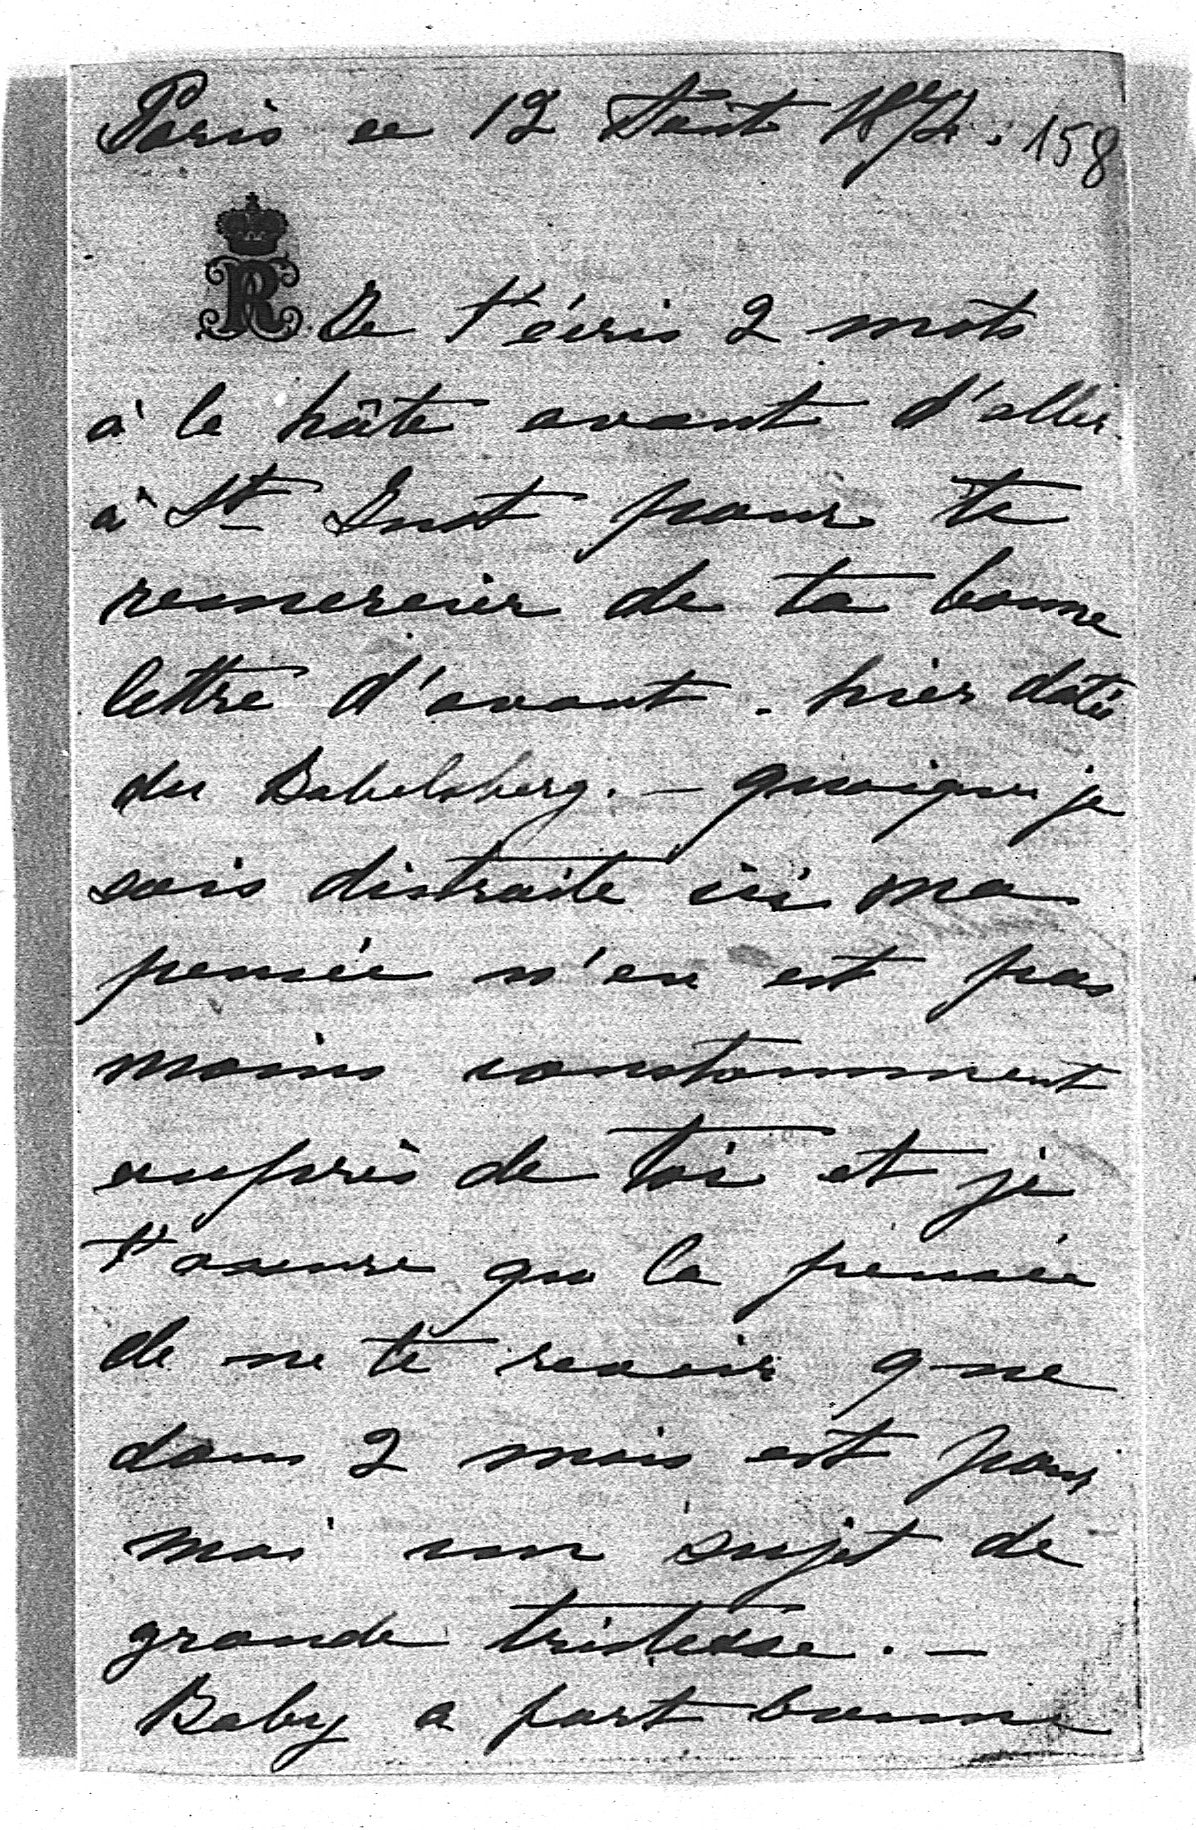 Paris ce 12 Août 187 . 158
R
Je t'écris 2 mots
à la hâte avant d'aller
à St Just pour te
remercier de ta bonne
lettre d'avant-hier datée
du Babelsberg. — quoique je
sois distraite ici ma
pensée n'en est pas
moins constamment
auprès de toi et je
t'assure que la pensée
de ne te revoir que
dans 2 mois est pour
moi un sujet de
grande tristesse. —
Baby a fort bonne